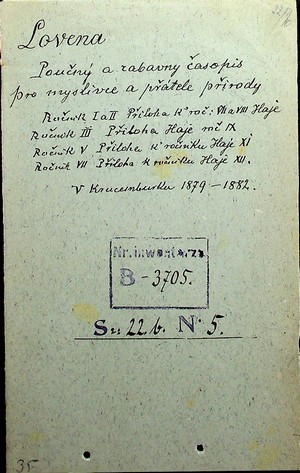 22/6
Lovena
Poučný a zabavny časopis
pro myslivce a přátele přírody
Ročník I a II Příloha k roč: VII a VIII Haje
Ročník III Příloha Haje roč IX
Ročník V Příloha k ročníku Haje XI
Ročník VII Příloha k ročníku Haje XII.
V Krucemburku 1879 – 1882.
Nr. inwentarza
B – 3705.
S: 22.b. N: 5.
35